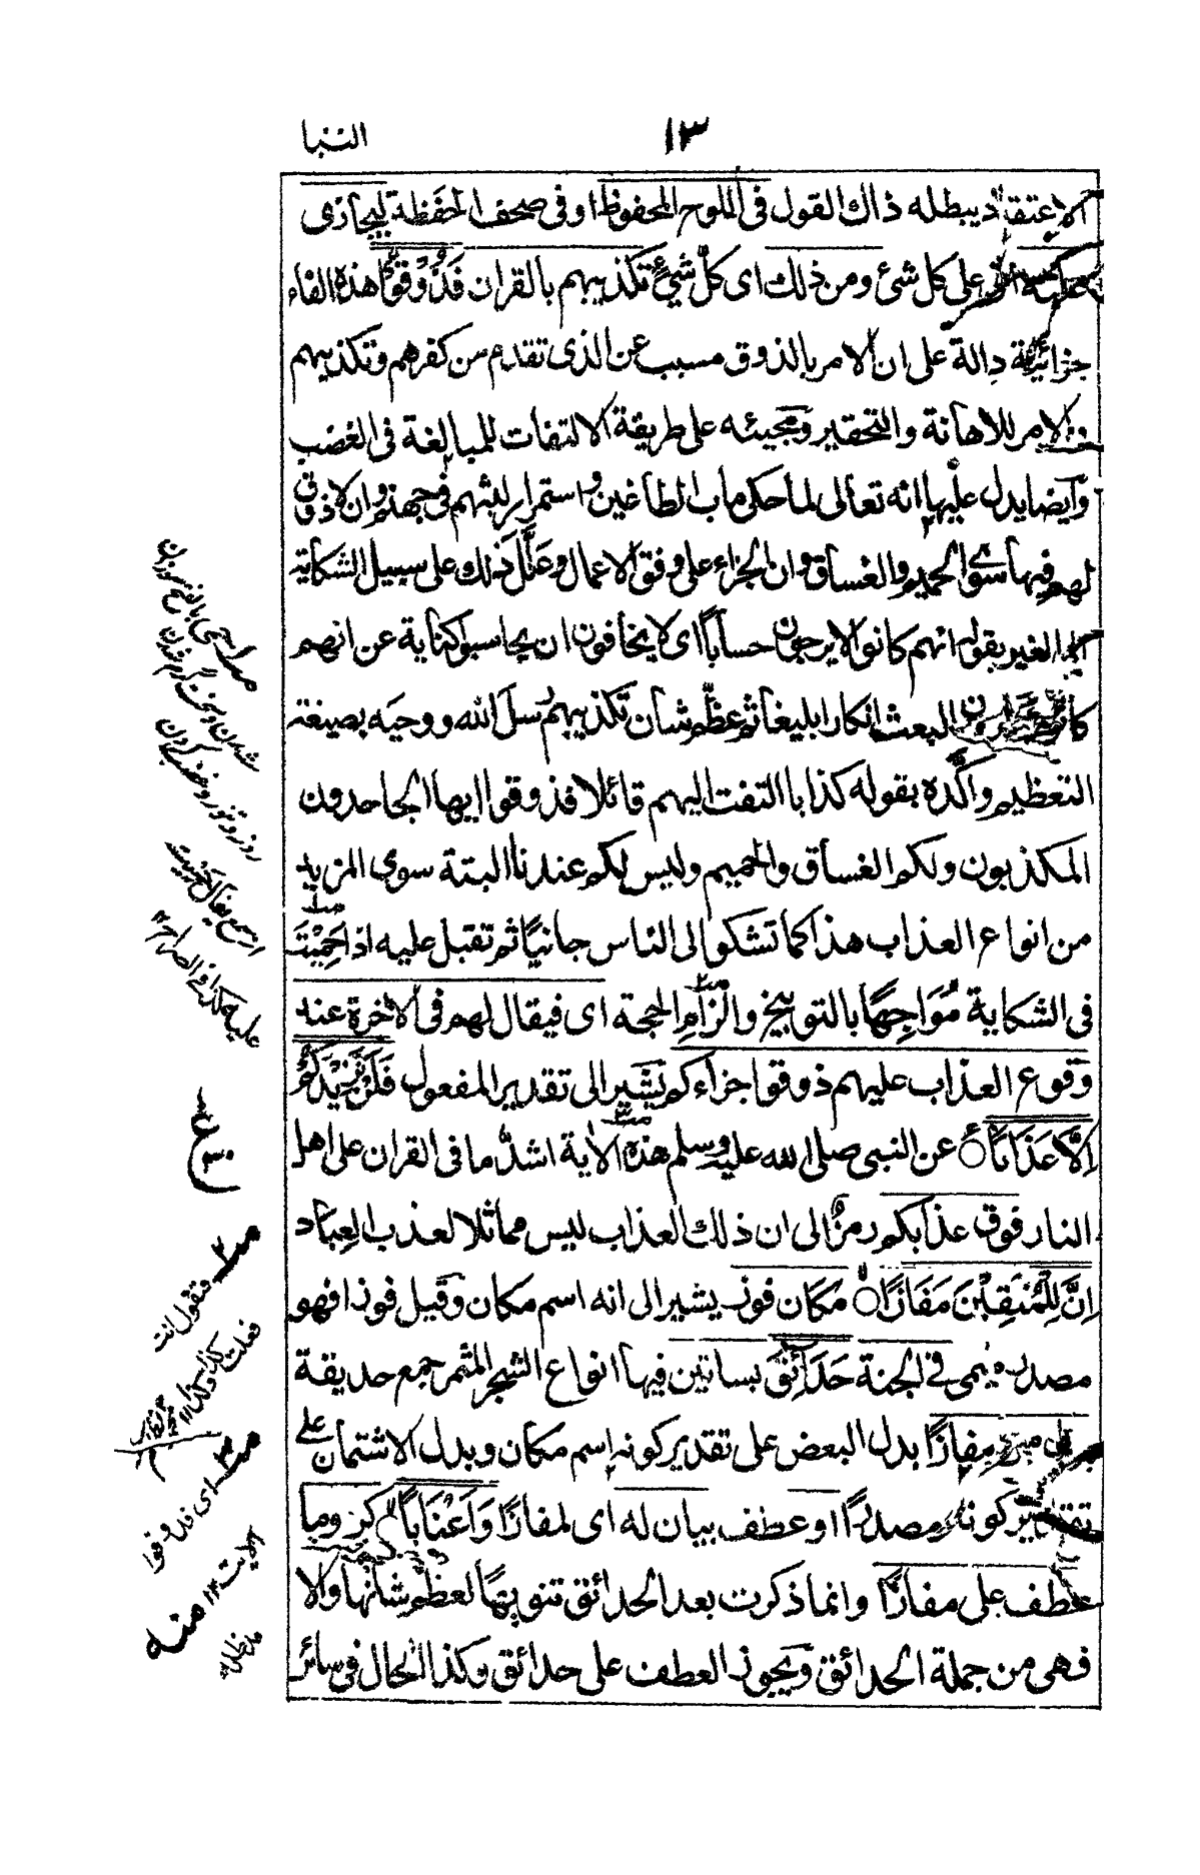 ١٣
النبا
الاعتقاد يبطله ذاك القول فى اللوح المحفوظ او فى صحف الحفظة ليجازى
على كل شئ ومن ذلك اى كل شئ تكذيبهم بالقران فَذُوْقُوْا هذه الفاء
جزائية دالة على ان الامر بالذوق مسبب عن الذى تقدم من كفرهم وتكذيبهم
والامر للاهانة والتحقير ومجيئه على طريقة الالتفات للمبالغة فى الغضب
وايضا يدل عليها انه تعالى لما حكى ماب الطاغين واستمرار لبثهم فى جهنم وان لا ذوق
لهم فيها سوى الحميم والغساق وان الجزاء على وفق الاعمال وعلل ذلك على سبيل الشكاية
الغير بقوله انهم كانوا لا يرجون حسابا اى لا يخافون ان يحاسبوا كناية عن انهم
البعث انكارا بليغا ثم عظم شان تكذيبهم رسل الله ووحيه بصيغة
التعظيم واكده بقوله كذابا التفت اليهم قائلا فذوقوا ايها الجاحدون
المكذبون ولكم الغساق والحميم وليس لكم عندنا البتة سوى المزيد
من انواع العذاب هذا كما تشكو الى الناس جانيا ثم تقبل عليه اذا حَمِيْتَ
فى الشكاية مُوَاجِهًا بالتوبيخ والزام الحجة اى فيقال لهم فى الاخرة عند
وقوع العذاب عليهم ذوقوا جزاءكم يشير الى تقدير المفعول فَلَنْ نَّزِيْدَكُمْ
اِلَّا عَذَابًا عن النبى صلى الله عليه وسلم هذه الاية اشد ما فى القران على اهل
النار فوق عذابكم رمز الى ان ذلك العذاب ليس مماثلا لعذاب العباد
اِنَّ لِلْمُتَّقِيْنَ مَفَازًا مكان فوز يشير الى انه اسم مكان وقيل فوزا فهو
مصدر ميمى فى الجنة حَدَائِقَ بساتين فيها انواع الشجر المثمر جمع حديقة
بدل من مفازا بدل البعض على تقدير كونه اسم مكان وبدل الاشتمال على
تقدير كونه مصدرا او عطف بيان له اى لمفازا وَاَعْنَابًا كروما
عطف على مفازا وانما ذكرت بعد الحدائق تنويها لعظم شانها والا
فهى من جملة الحدائق ويجوز العطف على حدائق وكذا الحال فى سائر
عليه كذا فى الصراح ١٢
فتقول انت
فعلت كذا وكذا
اى فذوقوا
الاية ١٢ منه